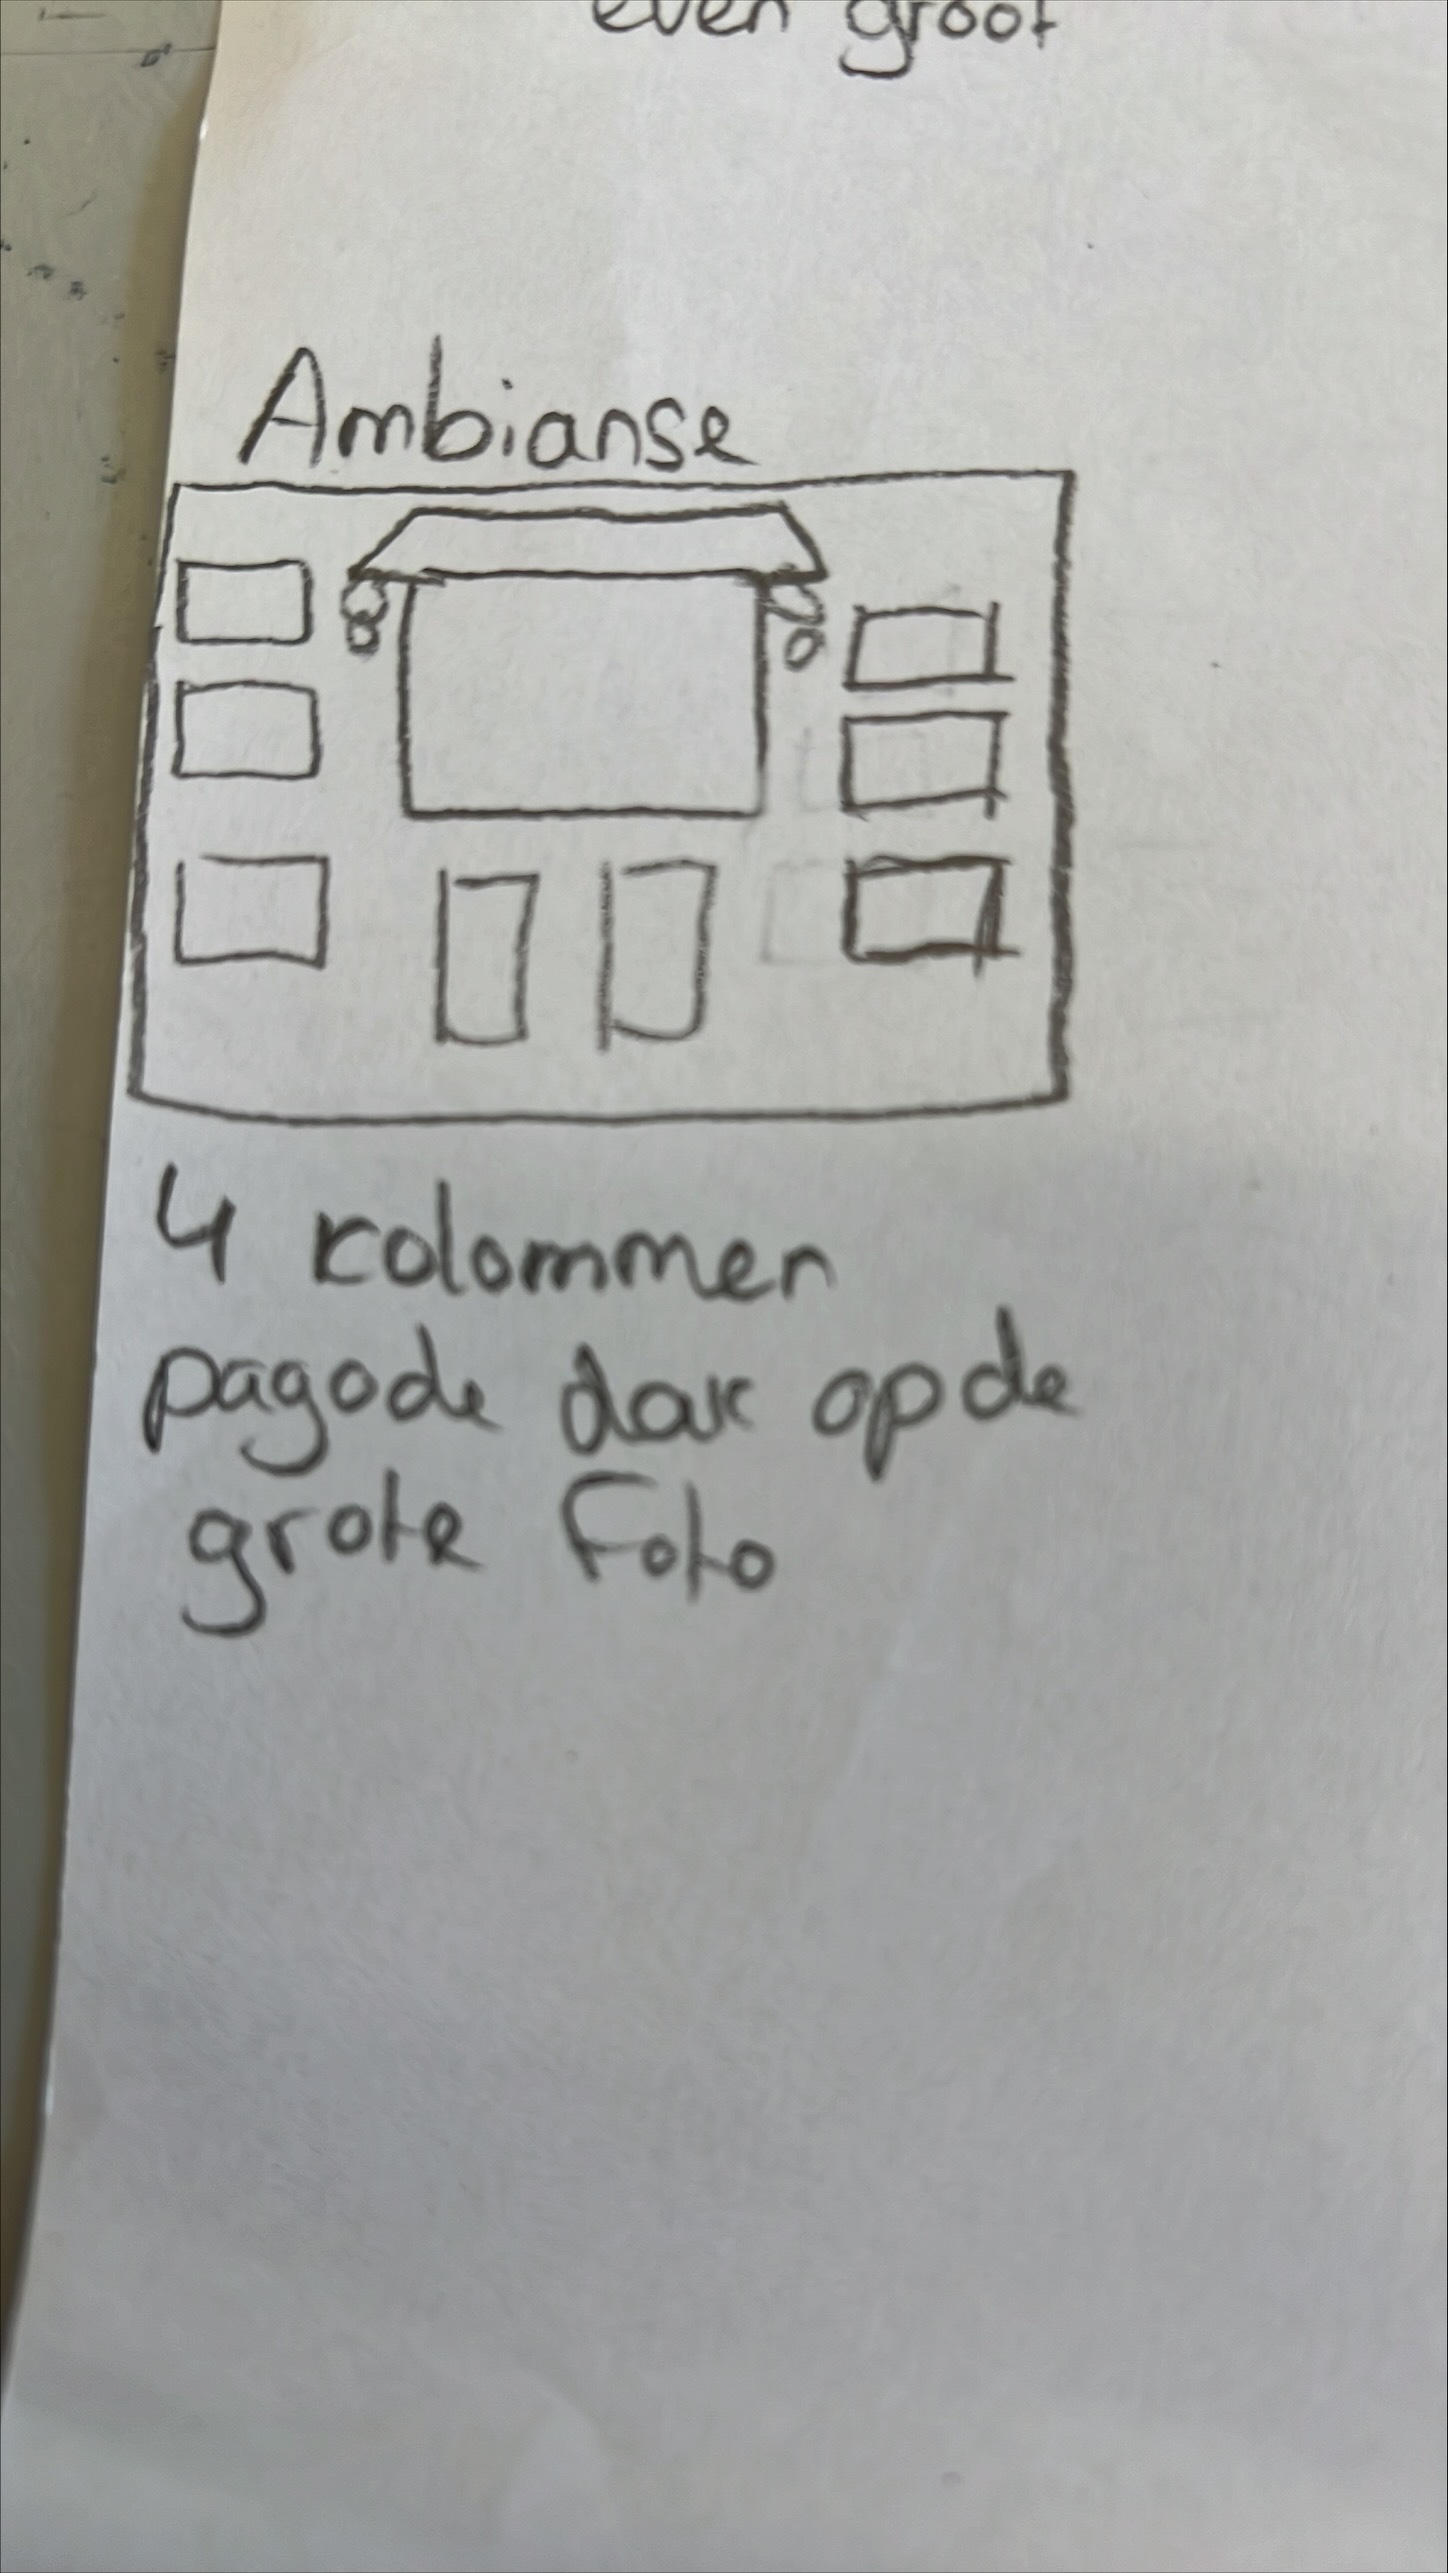 even groot
Ambianse
4 kolommen
pagode dak op de
grote Foto